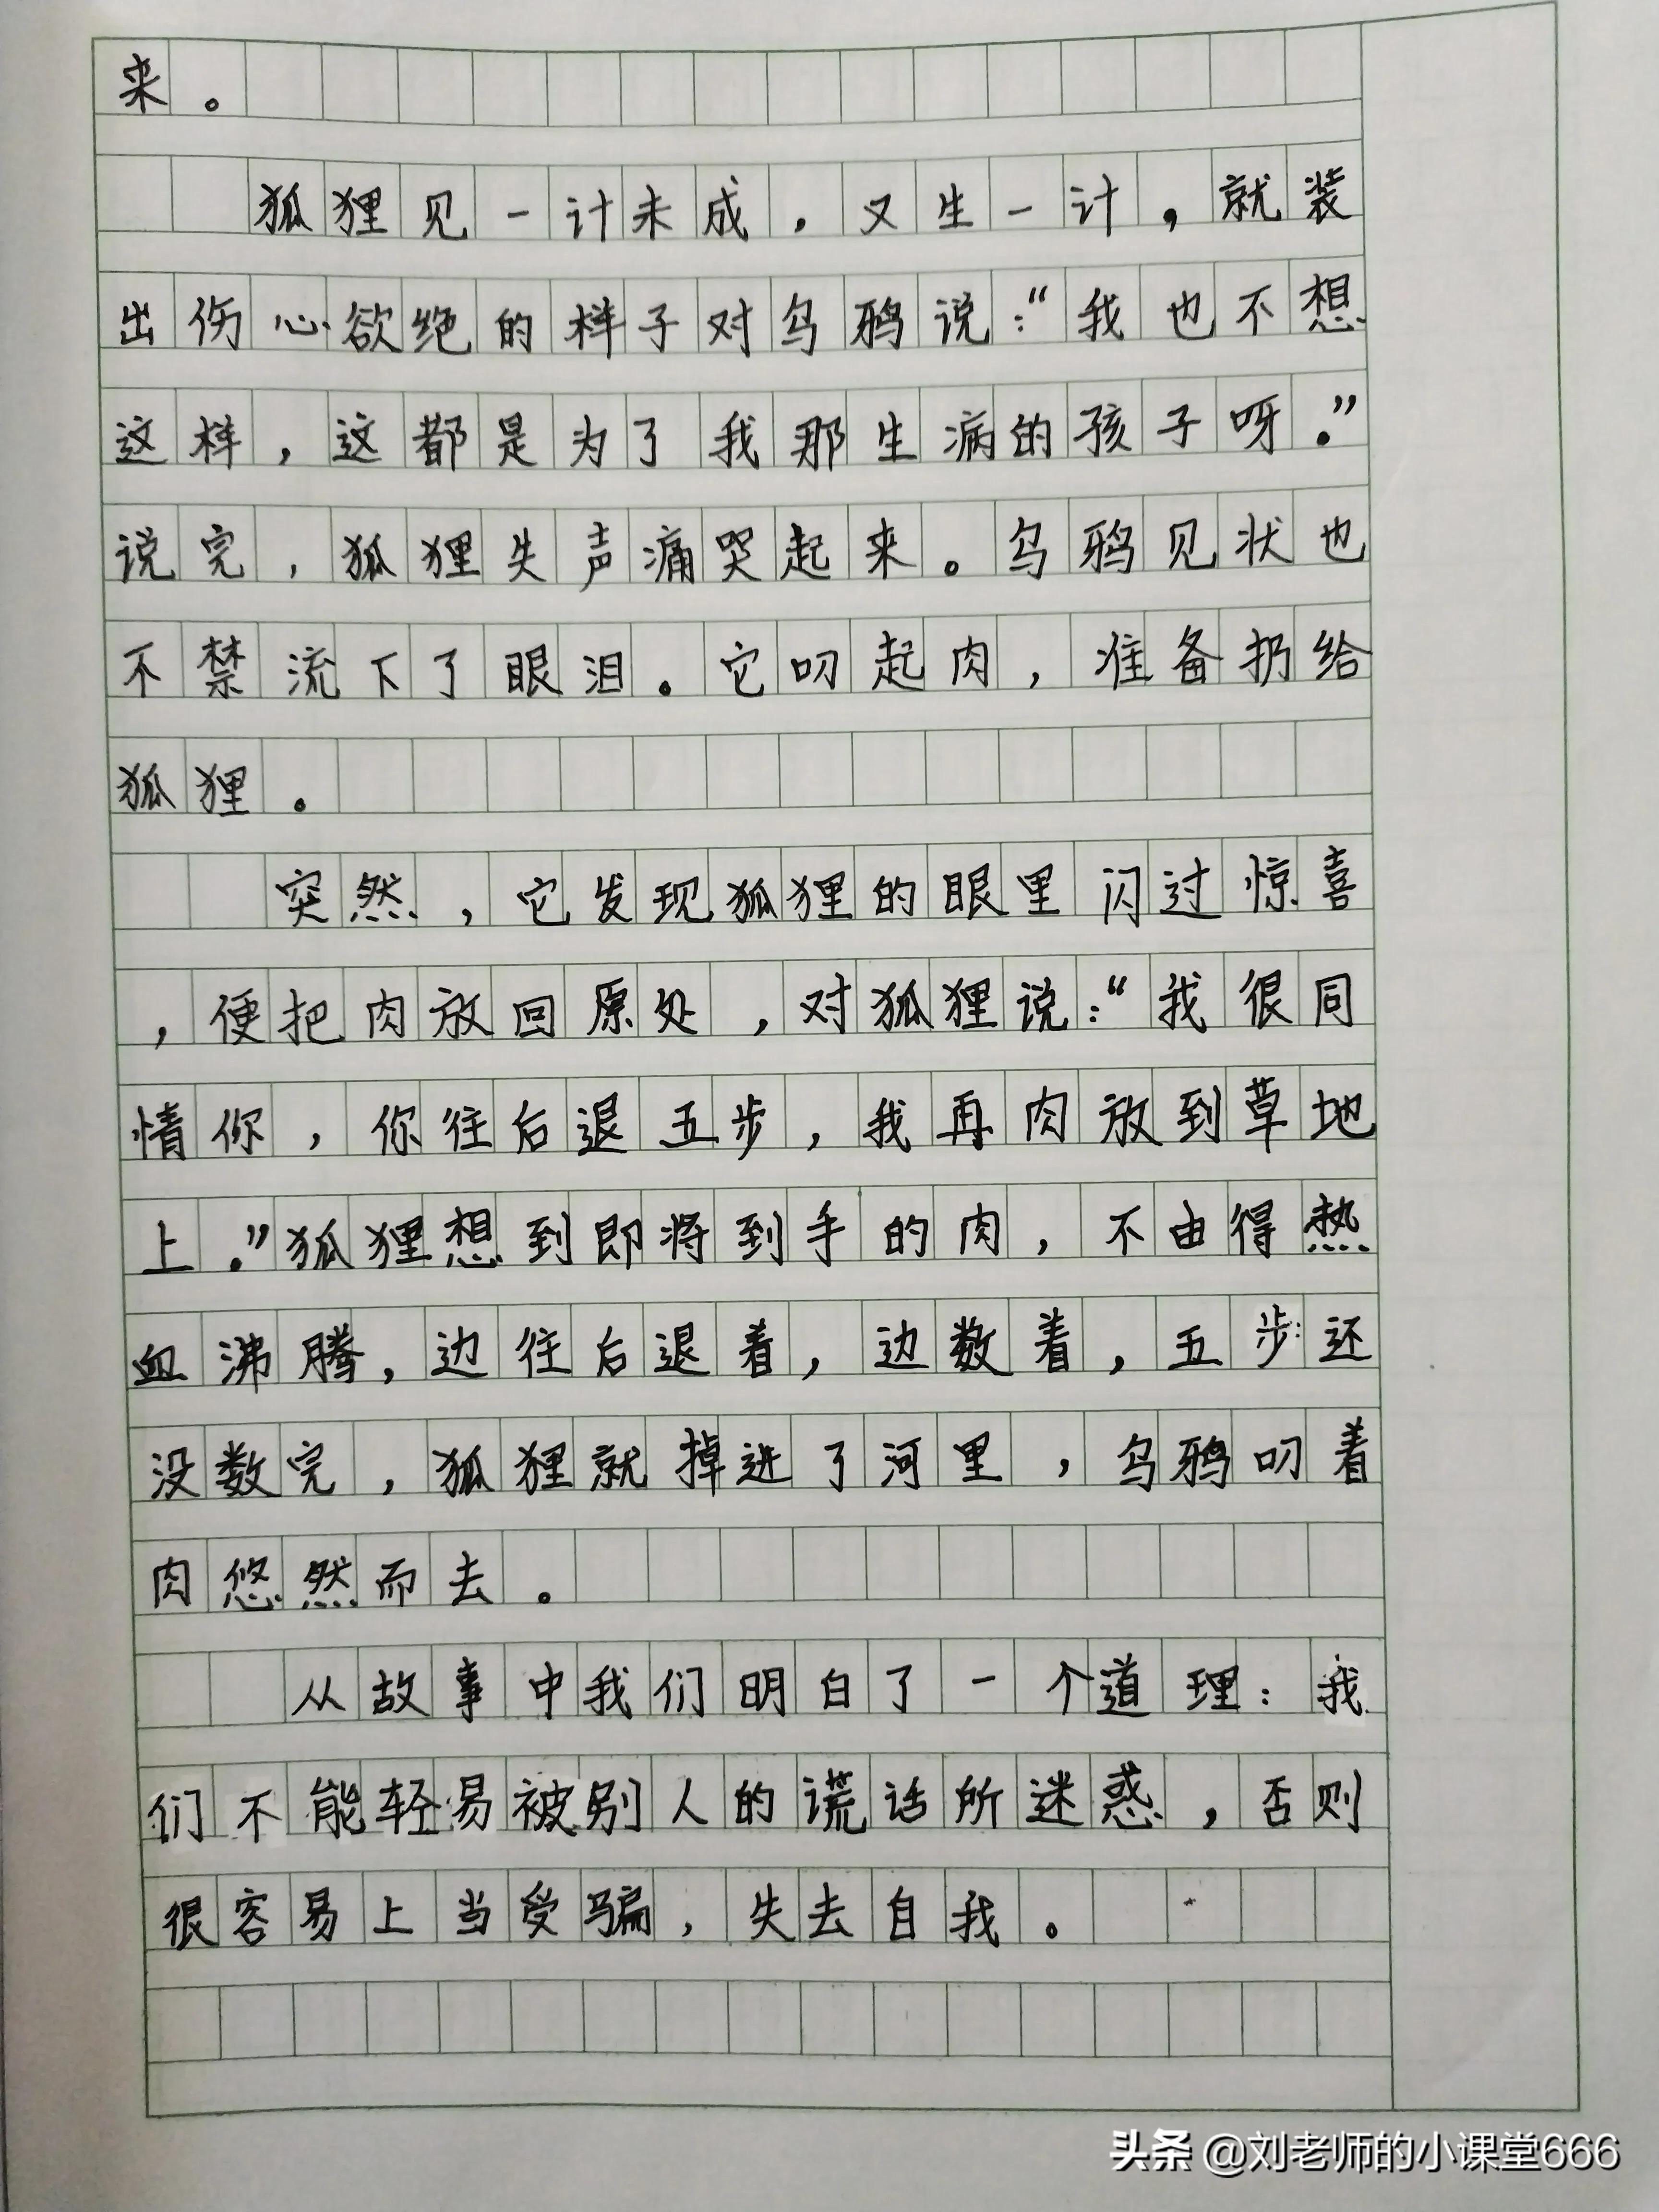 来。
狐狸见一计未成，又生一计，就装
出伤心欲绝的样子对乌鸦说：“我也不想
这样，这都是为了我那生病的孩子呀。”
说完，狐狸失声痛哭起来。乌鸦见状也
不禁流下了眼泪。它叼起肉，准备扔给
狐狸。
突然，它发现狐狸的眼里闪过惊喜
，便把肉放回原处，对狐狸说：“我很同
情你，你往后退五步，我再肉放到草地
上。”狐狸想到即将到手的肉，不由得热
血沸腾，边往后退着，边数着，五步还
没数完，狐狸就掉进了河里，乌鸦叼着
肉悠然而去。
从故事中我们明白了一个道理：我
们不能轻易被别人的谎话所迷惑，否则
很容易上当受骗，失去自我。
头条 @刘老师的小课堂666